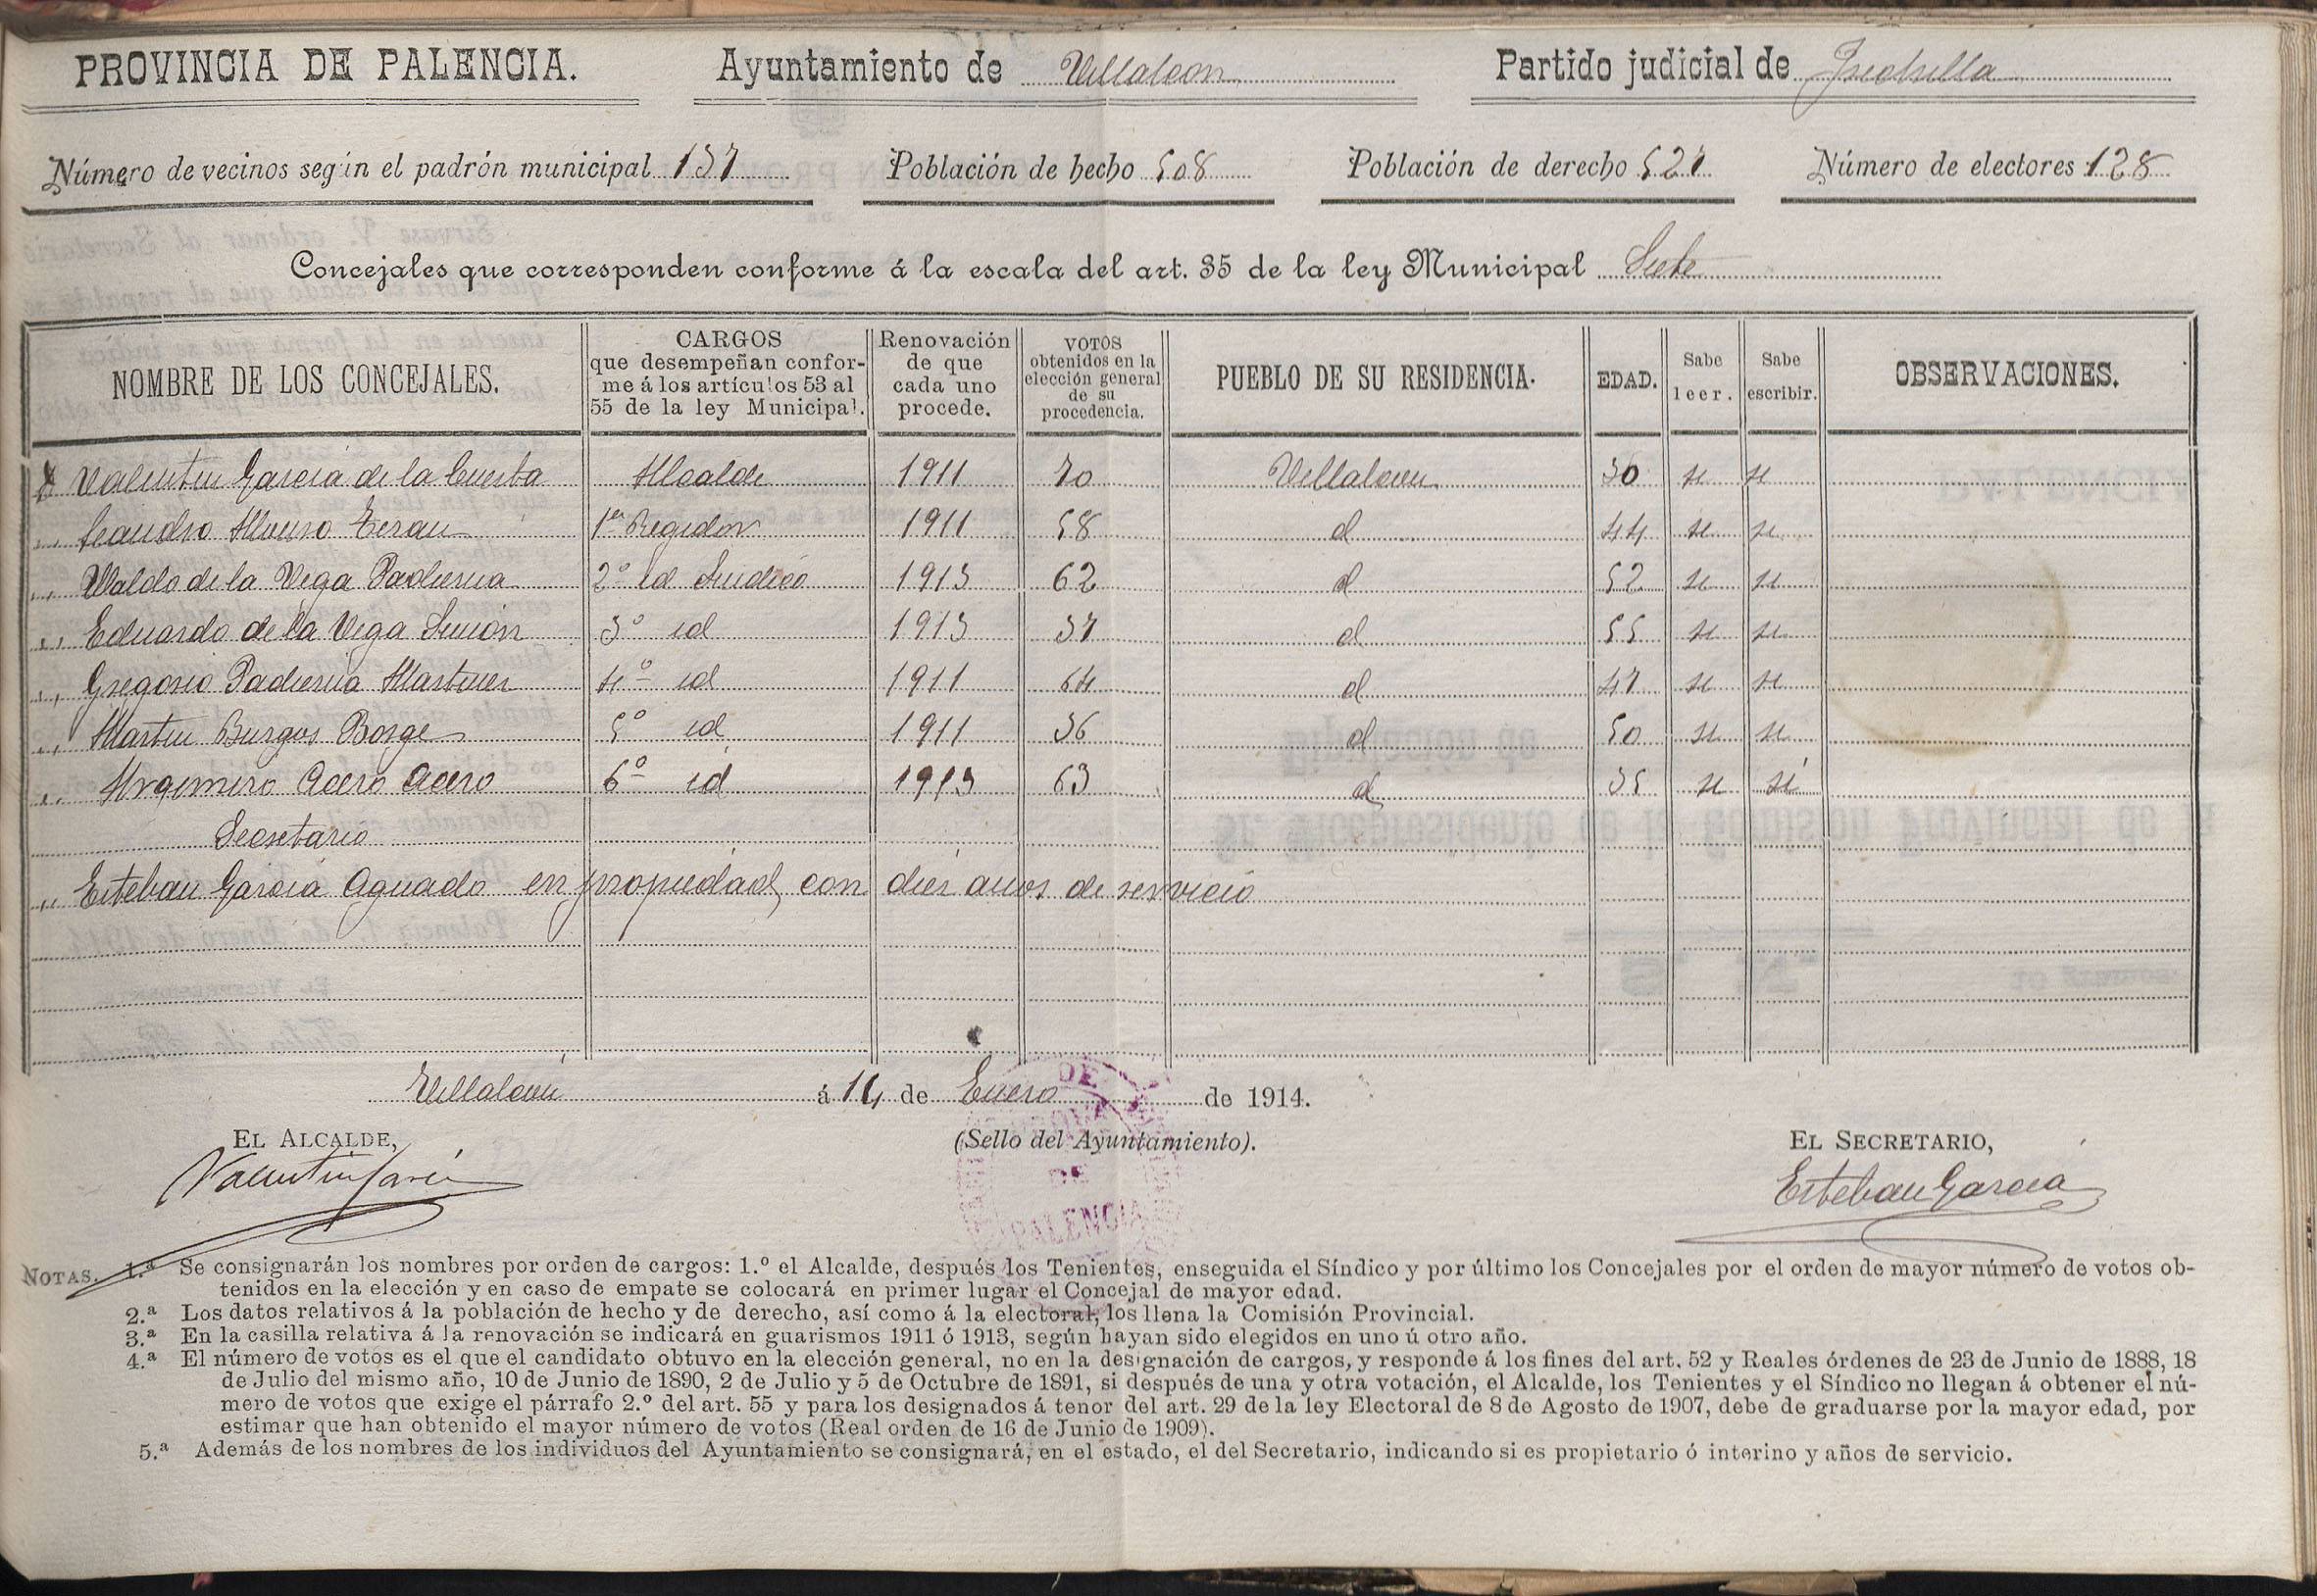 PROVINCIA DE PALENCIA. Ayuntamiento de Villalcon Partido judicial de Frechilla
Número de vecinos según el padrón municipal 137 Población de hecho 508 Población de derecho 527 Número de electores 128
Concejales que corresponden conforme á la escala del art. 35 de la ley Municipal Siete
NOMBRE DE LOS CONCEJALES. CARGOS que desempeñan conforme á los artículos 53 al 55 de la ley Municipal. Renovación de que cada uno procede. VOTOS obtenidos en la elección general de su procedencia. PUEBLO DE SU RESIDENCIA. EDAD. Sabe leer. Sabe escribir. OBSERVACIONES.
D Valentin Garcia de la Cuesta Alcalde 1911 70 Villalcon 30 si si
,, Leandro Alonso Teran 1er Regidor 1911 58 id 44 si si
,, Ubaldo de la Vega Padierna 2º id Sindico 1913 62 id 52 si si
,, Eduardo de la Vega Simón 3º id 1913 37 id 55 si si
,, Gregorio Padierna Martinez 4º id 1911 64 id 47 si si
,, Martin Burgos Borge 5º id 1911 36 id 50 si si
,, Argimiro Acero Acero 6º id 1913 63 id 35 si si
Secretario
,, Esteban García Aguado en propiedad, con diez años de servicio
Villalcon á 14 de Enero de 1914.
EL ALCALDE, (Sello del Ayuntamiento). EL SECRETARIO,
Valentin García Esteban García
DE
DE
PALENCIA
NOTAS. 1.ª Se consignarán los nombres por orden de cargos: 1.º el Alcalde, después los Tenientes, enseguida el Síndico y por último los Concejales por el orden de mayor número de votos ob-
tenidos en la elección y en caso de empate se colocará en primer lugar el Concejal de mayor edad.
2.ª Los datos relativos á la población de hecho y de derecho, así como á la electoral, los llena la Comisión Provincial.
3.ª En la casilla relativa á la renovación se indicará en guarismos 1911 ó 1913, según hayan sido elegidos en uno ú otro año.
4.ª El número de votos es el que el candidato obtuvo en la elección general, no en la designación de cargos, y responde á los fines del art. 52 y Reales órdenes de 23 de Junio de 1888, 18
de Julio del mismo año, 10 de Junio de 1890, 2 de Julio y 5 de Octubre de 1891, si después de una y otra votación, el Alcalde, los Tenientes y el Síndico no llegan á obtener el nú-
mero de votos que exige el párrafo 2.º del art. 55 y para los designados á tenor del art. 29 de la ley Electoral de 8 de Agosto de 1907, debe de graduarse por la mayor edad, por
estimar que han obtenido el mayor número de votos (Real orden de 16 de Junio de 1909).
5.ª Además de los nombres de los individuos del Ayuntamiento se consignará, en el estado, el del Secretario, indicando si es propietario ó interino y años de servicio.